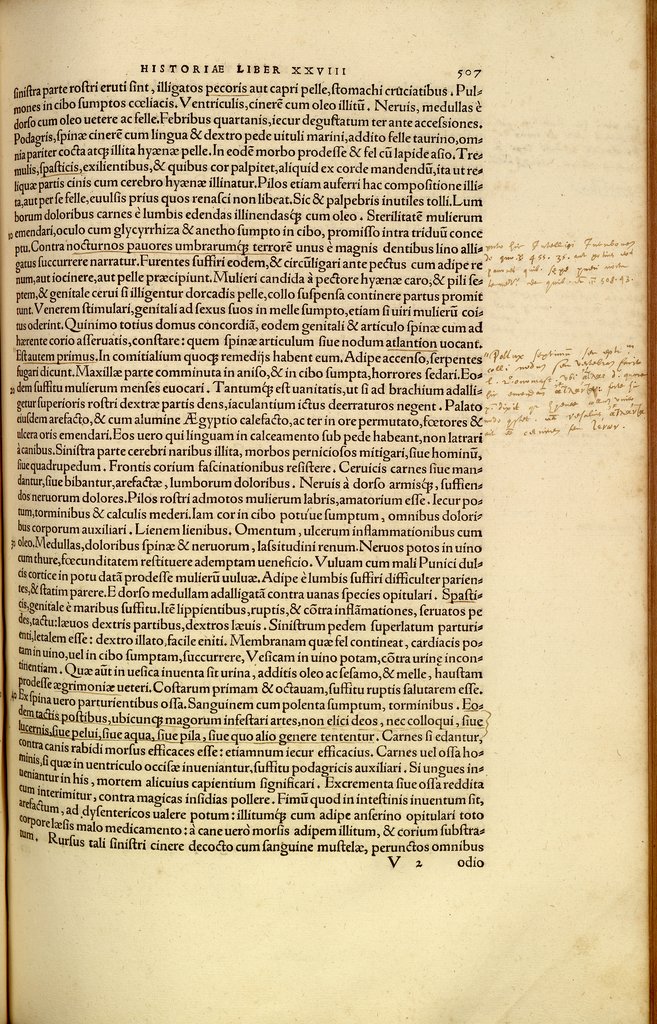 HISTORIAE LIBER XXVIII 507
sinistra parte rostri eruti sint, illigatos pecoris aut capri pelle, stomachi cruciatibus. Pul-
mones in cibo sumptos cœliacis. Ventriculis, cinerē cum oleo illitū. Neruis, medullas è
dorso cum oleo uetere ac felle. Febribus quartanis, iecur degustatum ter ante accessiones.
Podagris, spinæ cinerē cum lingua & dextro pede uituli marini, addito felle taurino, om-
nia pariter cocta atq; illita hyænæ pelle. In eodē morbo prodesse & fel cū lapide asio. Tre-
mulis, spasticis, exilientibus, & quibus cor palpitet, aliquid ex corde mandendū, ita ut re-
liquæ partis cinis cum cerebro hyænæ illinatur. Pilos etiam auferri hac compositione illi-
ta, aut per se felle, euulsis prius quos renasci non libeat. Sic & palpebris inutiles tolli. Lum
borum doloribus carnes è lumbis edendas illinendasq; cum oleo. Sterilitatē mulierum
10 emendari, oculo cum glycyrrhiza & anetho sumpto in cibo, promisso intra triduū conce
ptu. Contra nocturnos pauores umbrarumq; terrorē unus è magnis dentibus lino alli-
gatus succurrere narratur. Furentes suffiri eodem, & circūligari ante pectus cum adipe re
num, aut iocinere, aut pelle præcipiunt. Mulieri candida à pectore hyænæ caro, & pili se-
ptem, & genitale cerui si illigentur dorcadis pelle, collo suspensa continere partus promit
tunt. Venerem stimulari, genitali ad sexus suos in melle sumpto, etiam si uiri mulierū coi-
tus oderint. Quinimo totius domus concordiā, eodem genitali & articulo spinæ cum ad
hærente corio asseruatis, constare: quem spinæ articulum siue nodum atlantion uocant.
Est autem primus. In comitialium quoq; remedijs habent eum. Adipe accenso, serpentes
fugari dicunt. Maxillæ parte comminuta in aniso, & in cibo sumpta, horrores sedari. Eo-
20 dem suffitu mulierum menses euocari. Tantumq; est uanitatis, ut si ad brachium adalli-
getur superioris rostri dextræ partis dens, iaculantium ictus deerraturos negent. Palato
eiusdem arefacto, & cum alumine Ægyptio calefacto, ac ter in ore permutato, fœtores &
ulcera oris emendari. Eos uero qui linguam in calceamento sub pede habeant, non latrari
à canibus. Sinistra parte cerebri naribus illita, morbos perniciosos mitigari, siue hominū,
siue quadrupedum. Frontis corium fascinationibus resistere. Ceruicis carnes siue man-
dantur, siue bibantur, arefactæ, lumborum doloribus. Neruis à dorso armisq;, suffien-
dos neruorum dolores. Pilos rostri admotos mulierum labris, amatorium esse. Iecur po-
tum, torminibus & calculis mederi. Iam cor in cibo potu'ue sumptum, omnibus dolori-
bus corporum auxiliari. Lienem lienibus. Omentum, ulcerum inflammationibus cum
30 oleo. Medullas, doloribus spinæ & neruorum, lassitudini renum. Neruos potos in uino
cum thure, fœcunditatem restituere ademptam ueneficio. Vuluam cum mali Punici dul-
cis cortice in potu datā prodesse mulierū uuluæ. Adipe è lumbis suffiri difficulter parien-
tes, & statim parere. E dorso medullam adalligatā contra uanas species opitulari. Spasti-
cis, genitale è maribus suffitu. Itē lippientibus, ruptis, & cōtra inflāmationes, seruatos pe
des, tactu: læuos dextris partibus, dextros læuis. Sinistrum pedem superlatum parturi-
enti, letalem esse: dextro illato, facile eniti. Membranam quæ fel contineat, cardiacis po-
tam in uino, uel in cibo sumptam, succurrere, Vesicam in uino potam, cōtra urinę incon-
tinentiam. Quæ aūt in uesica inuenta sit urina, additis oleo ac sesamo, & melle, haustam
prodesse ægrimoniæ ueteri. Costarum primam & octauam, suffitu ruptis salutarem esse.
40 Ex spina uero parturientibus ossa. Sanguinem cum polenta sumptum, torminibus. Eo-
dem tactis postibus, ubicunq; magorum infestari artes, non elici deos, nec colloqui, siue
lucernis, siue pelui, siue aqua, siue pila, siue quo alio genere tententur. Carnes si edantur,
contra canis rabidi morsus efficaces esse: etiamnum iecur efficacius. Carnes uel ossa ho-
minis, si quæ in uentriculo occisæ inueniantur, suffitu podagricis auxiliari. Si ungues in-
ueniantur in his, mortem alicuius capientium significari. Excrementa siue ossa reddita
cum interimitur, contra magicas insidias pollere. Fimū quod in intestinis inuentum sit,
arefactum, ad dysentericos ualere potum: illitumq; cum adipe anserino opitulari toto
corpore læsis malo medicamento: à cane uero morsis adipem illitum, & corium substra-
tum. Rursus tali sinistri cinere decocto cum sanguine mustelæ, perunctos omnibus
V 2 odio